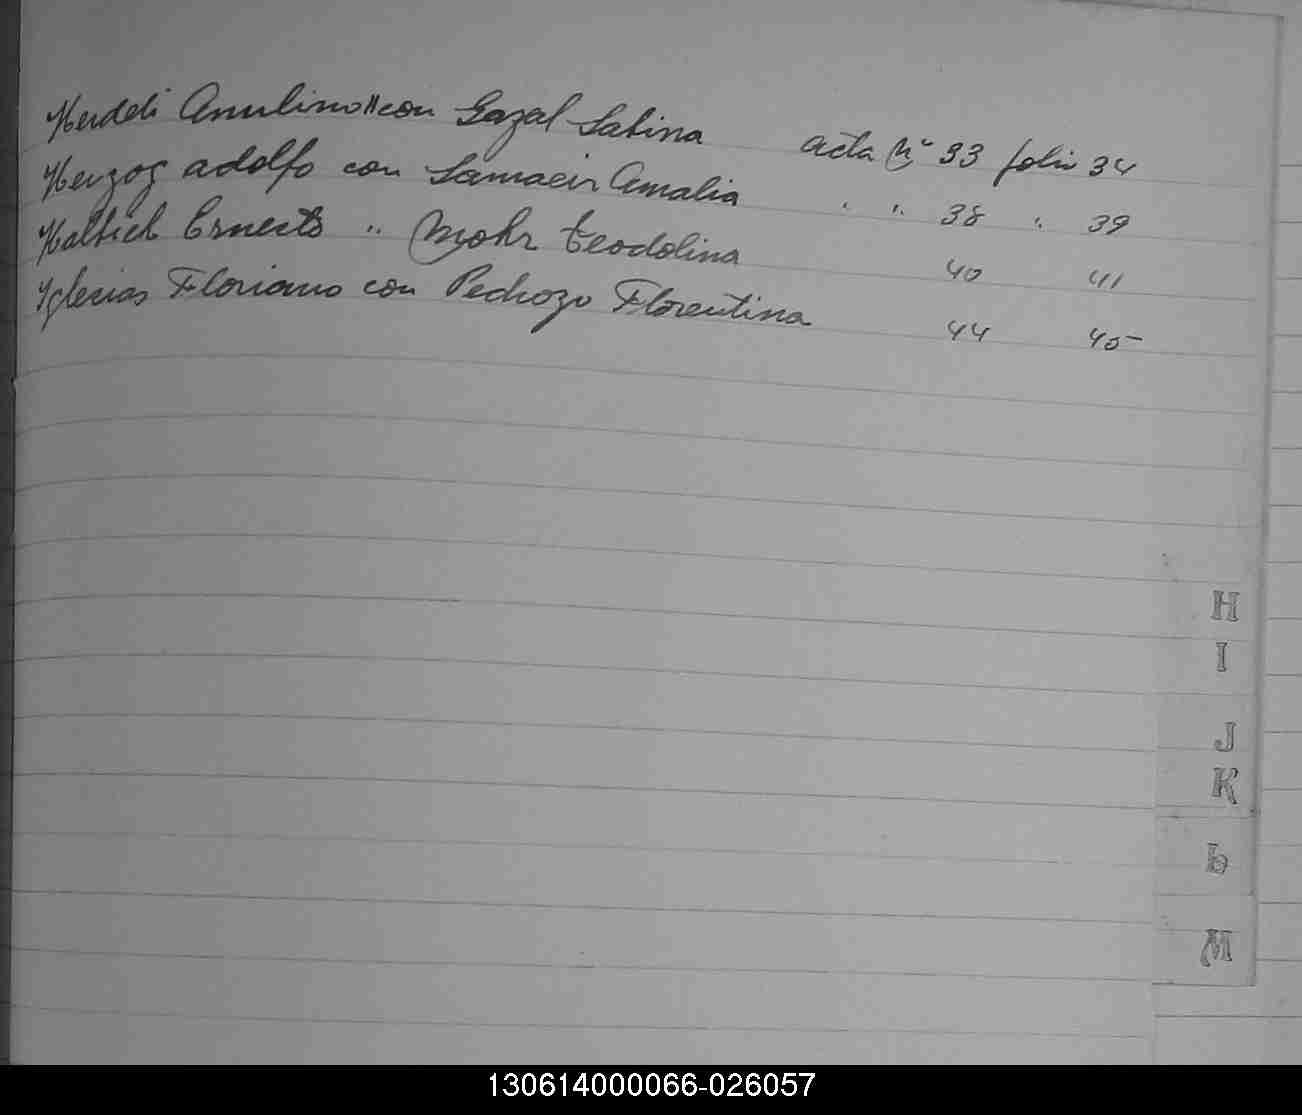 Herddi Anulino con Gazal Sabina acta Nº 33 folio 34
Herzog adolfo con Samacir Amalia " " 38 " 39
Haltich Ernesto " Mohr Teodolina 40 41
Yglecias Floriano con Pedrozo Florentina 44 45
H
I
J
K
L
M
130614000066-026057